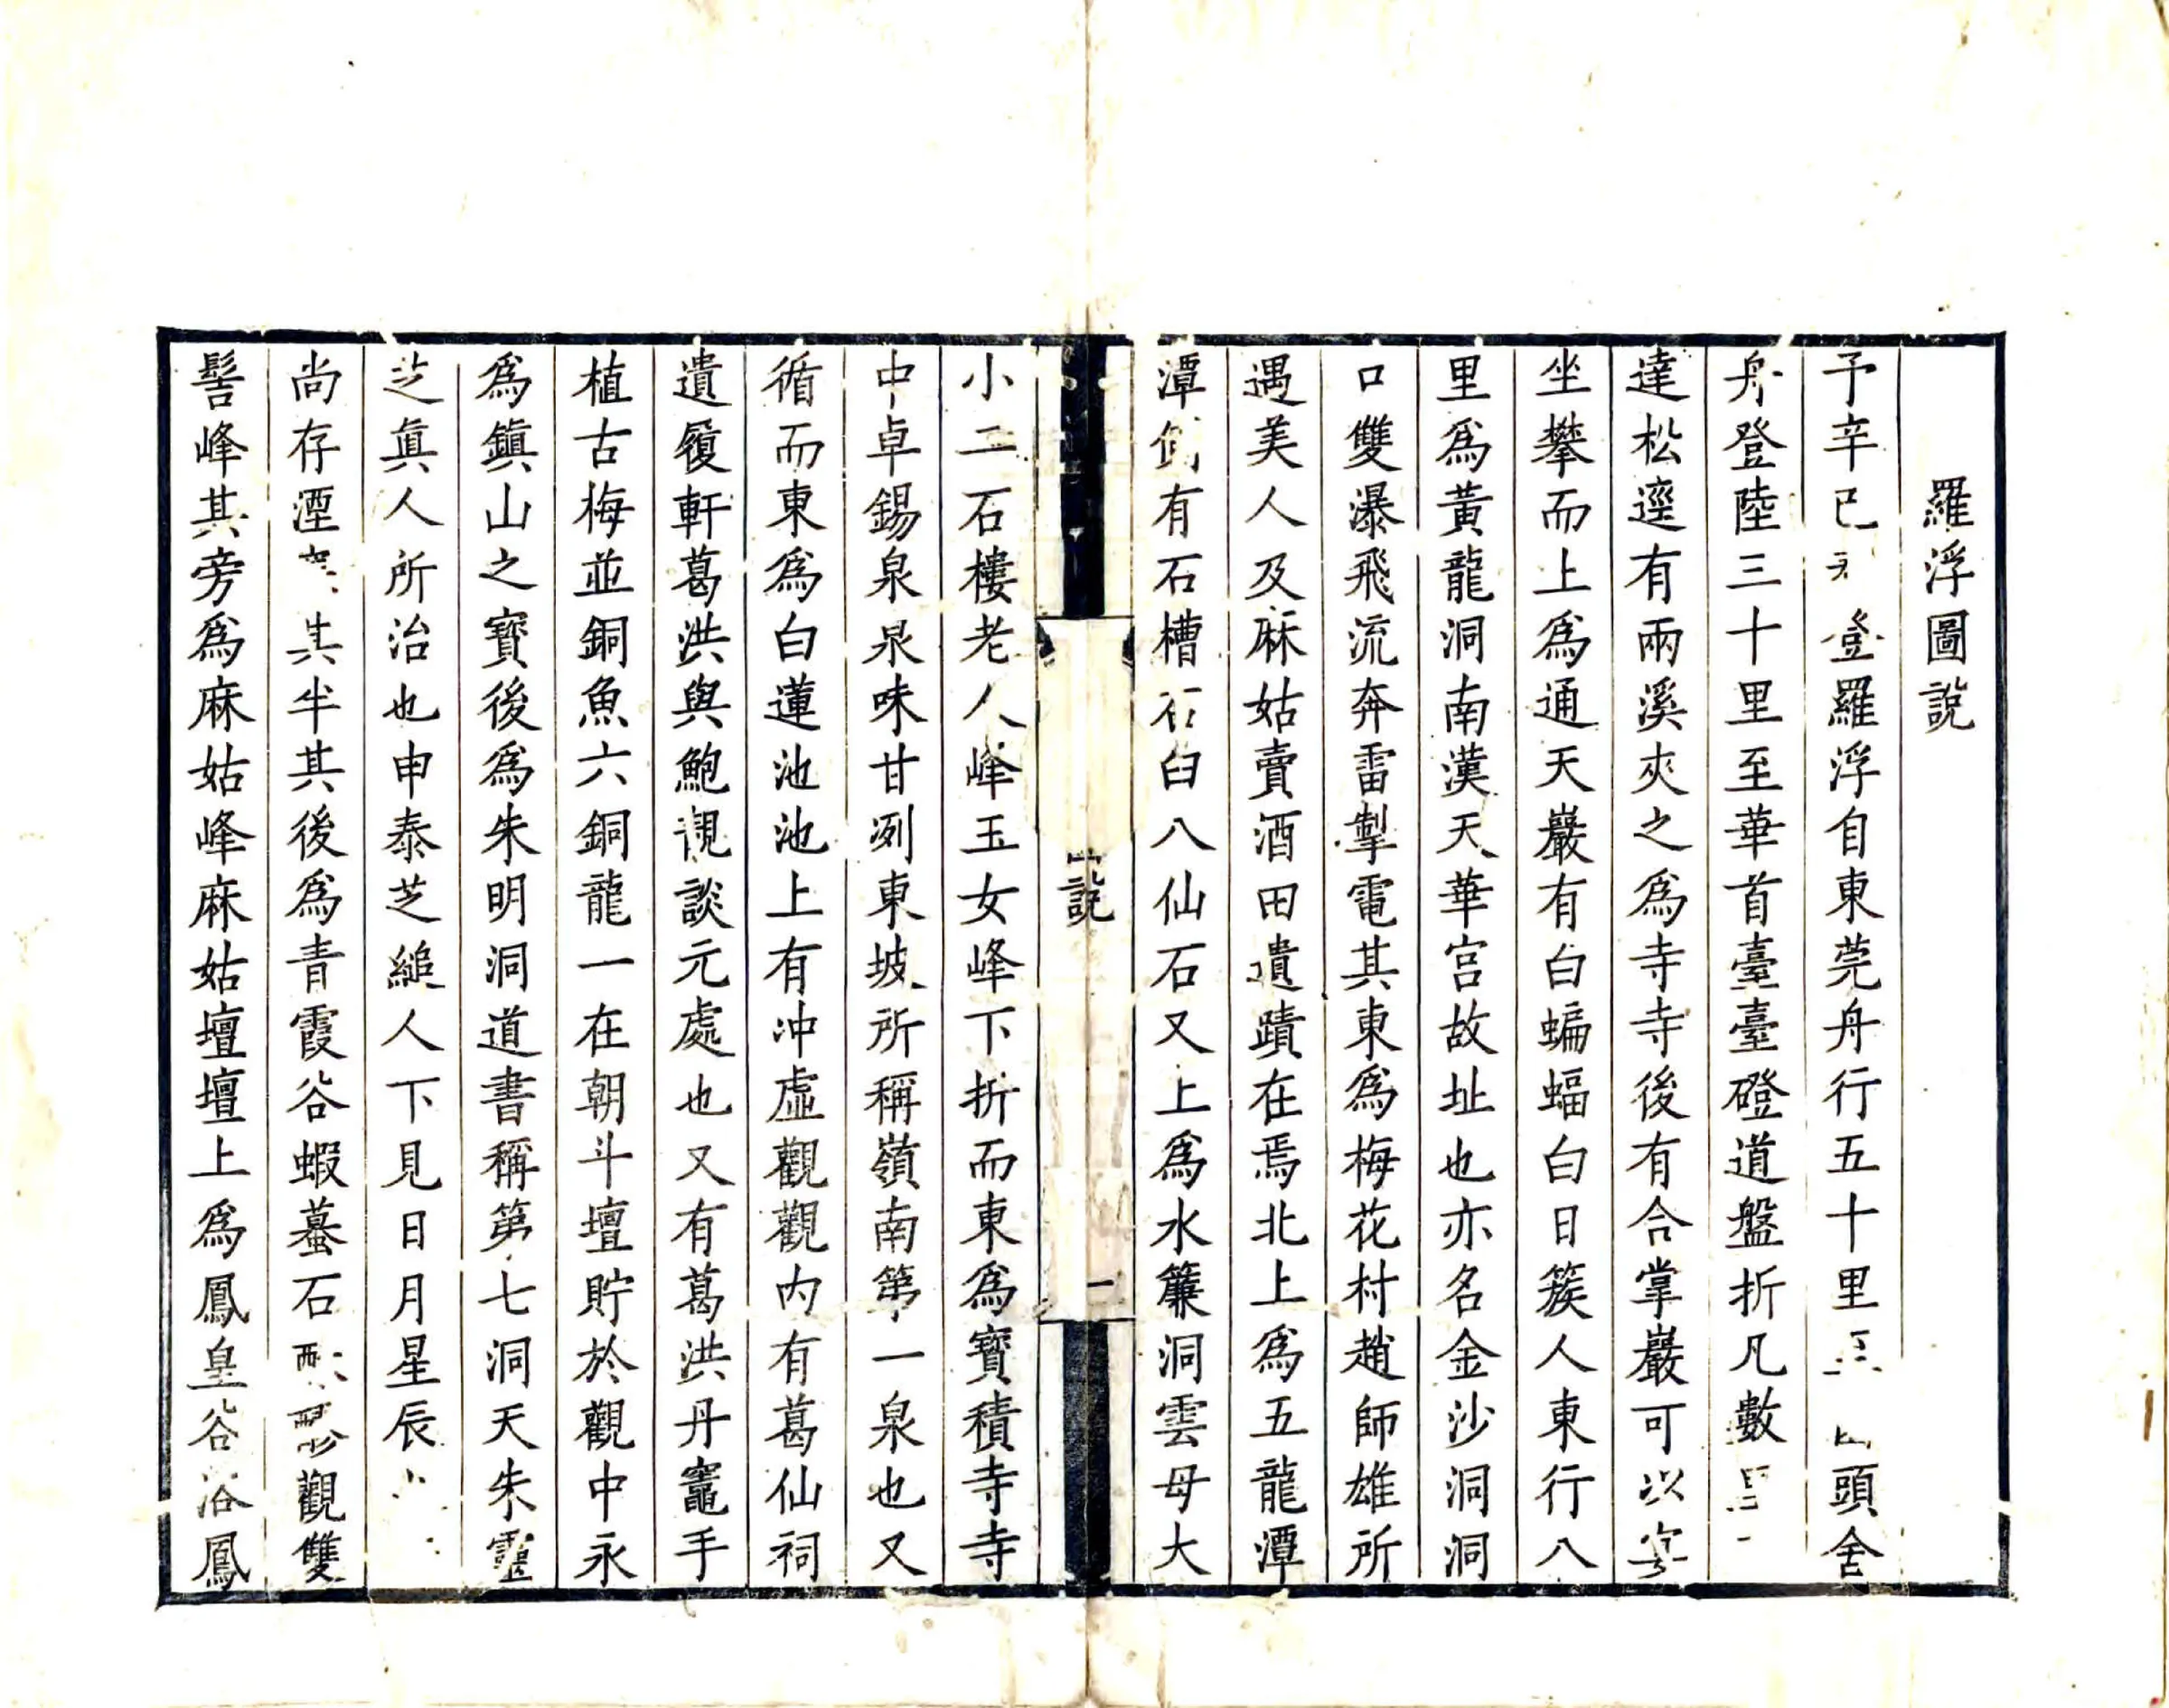 羅浮圖說
予辛巳登羅浮自東莞舟行五十里頭舍
舟登陸三十里至華首臺臺磴道盤折凡數
達松逕有兩溪夾之爲寺寺後有合掌巖可以
坐攀而上爲通天巖有白蝙蝠白日簇人東行八
里爲黃龍洞南漢天華宮故址也亦名金沙洞洞
口雙瀑飛流奔雷掣電其東爲梅花村趙師雄所
遇美人及麻姑賣酒田遺蹟在焉北上爲五龍潭
潭側有石槽石臼八仙石又上爲水簾洞雲母大
說
一
小二石樓老人峰玉女峰下折而東爲寶積寺寺
中卓錫泉泉味甘冽東坡所稱嶺南第一泉也又
循而東爲白蓮池池上有沖虛觀觀內有葛仙祠
遺履軒葛洪與鮑靚談元處也又有葛洪丹竈手
植古梅並銅魚六銅龍一在朝斗壇貯於觀中永
爲鎭山之寶後爲朱明洞道書稱第七洞天朱靈
芝眞人所治也申泰芝縋人下見日月星辰
尚存湮其半其後爲青霞谷蝦蟇石觀雙
髻峰其旁爲麻姑峰麻姑壇壇上爲鳳皇谷浴鳳